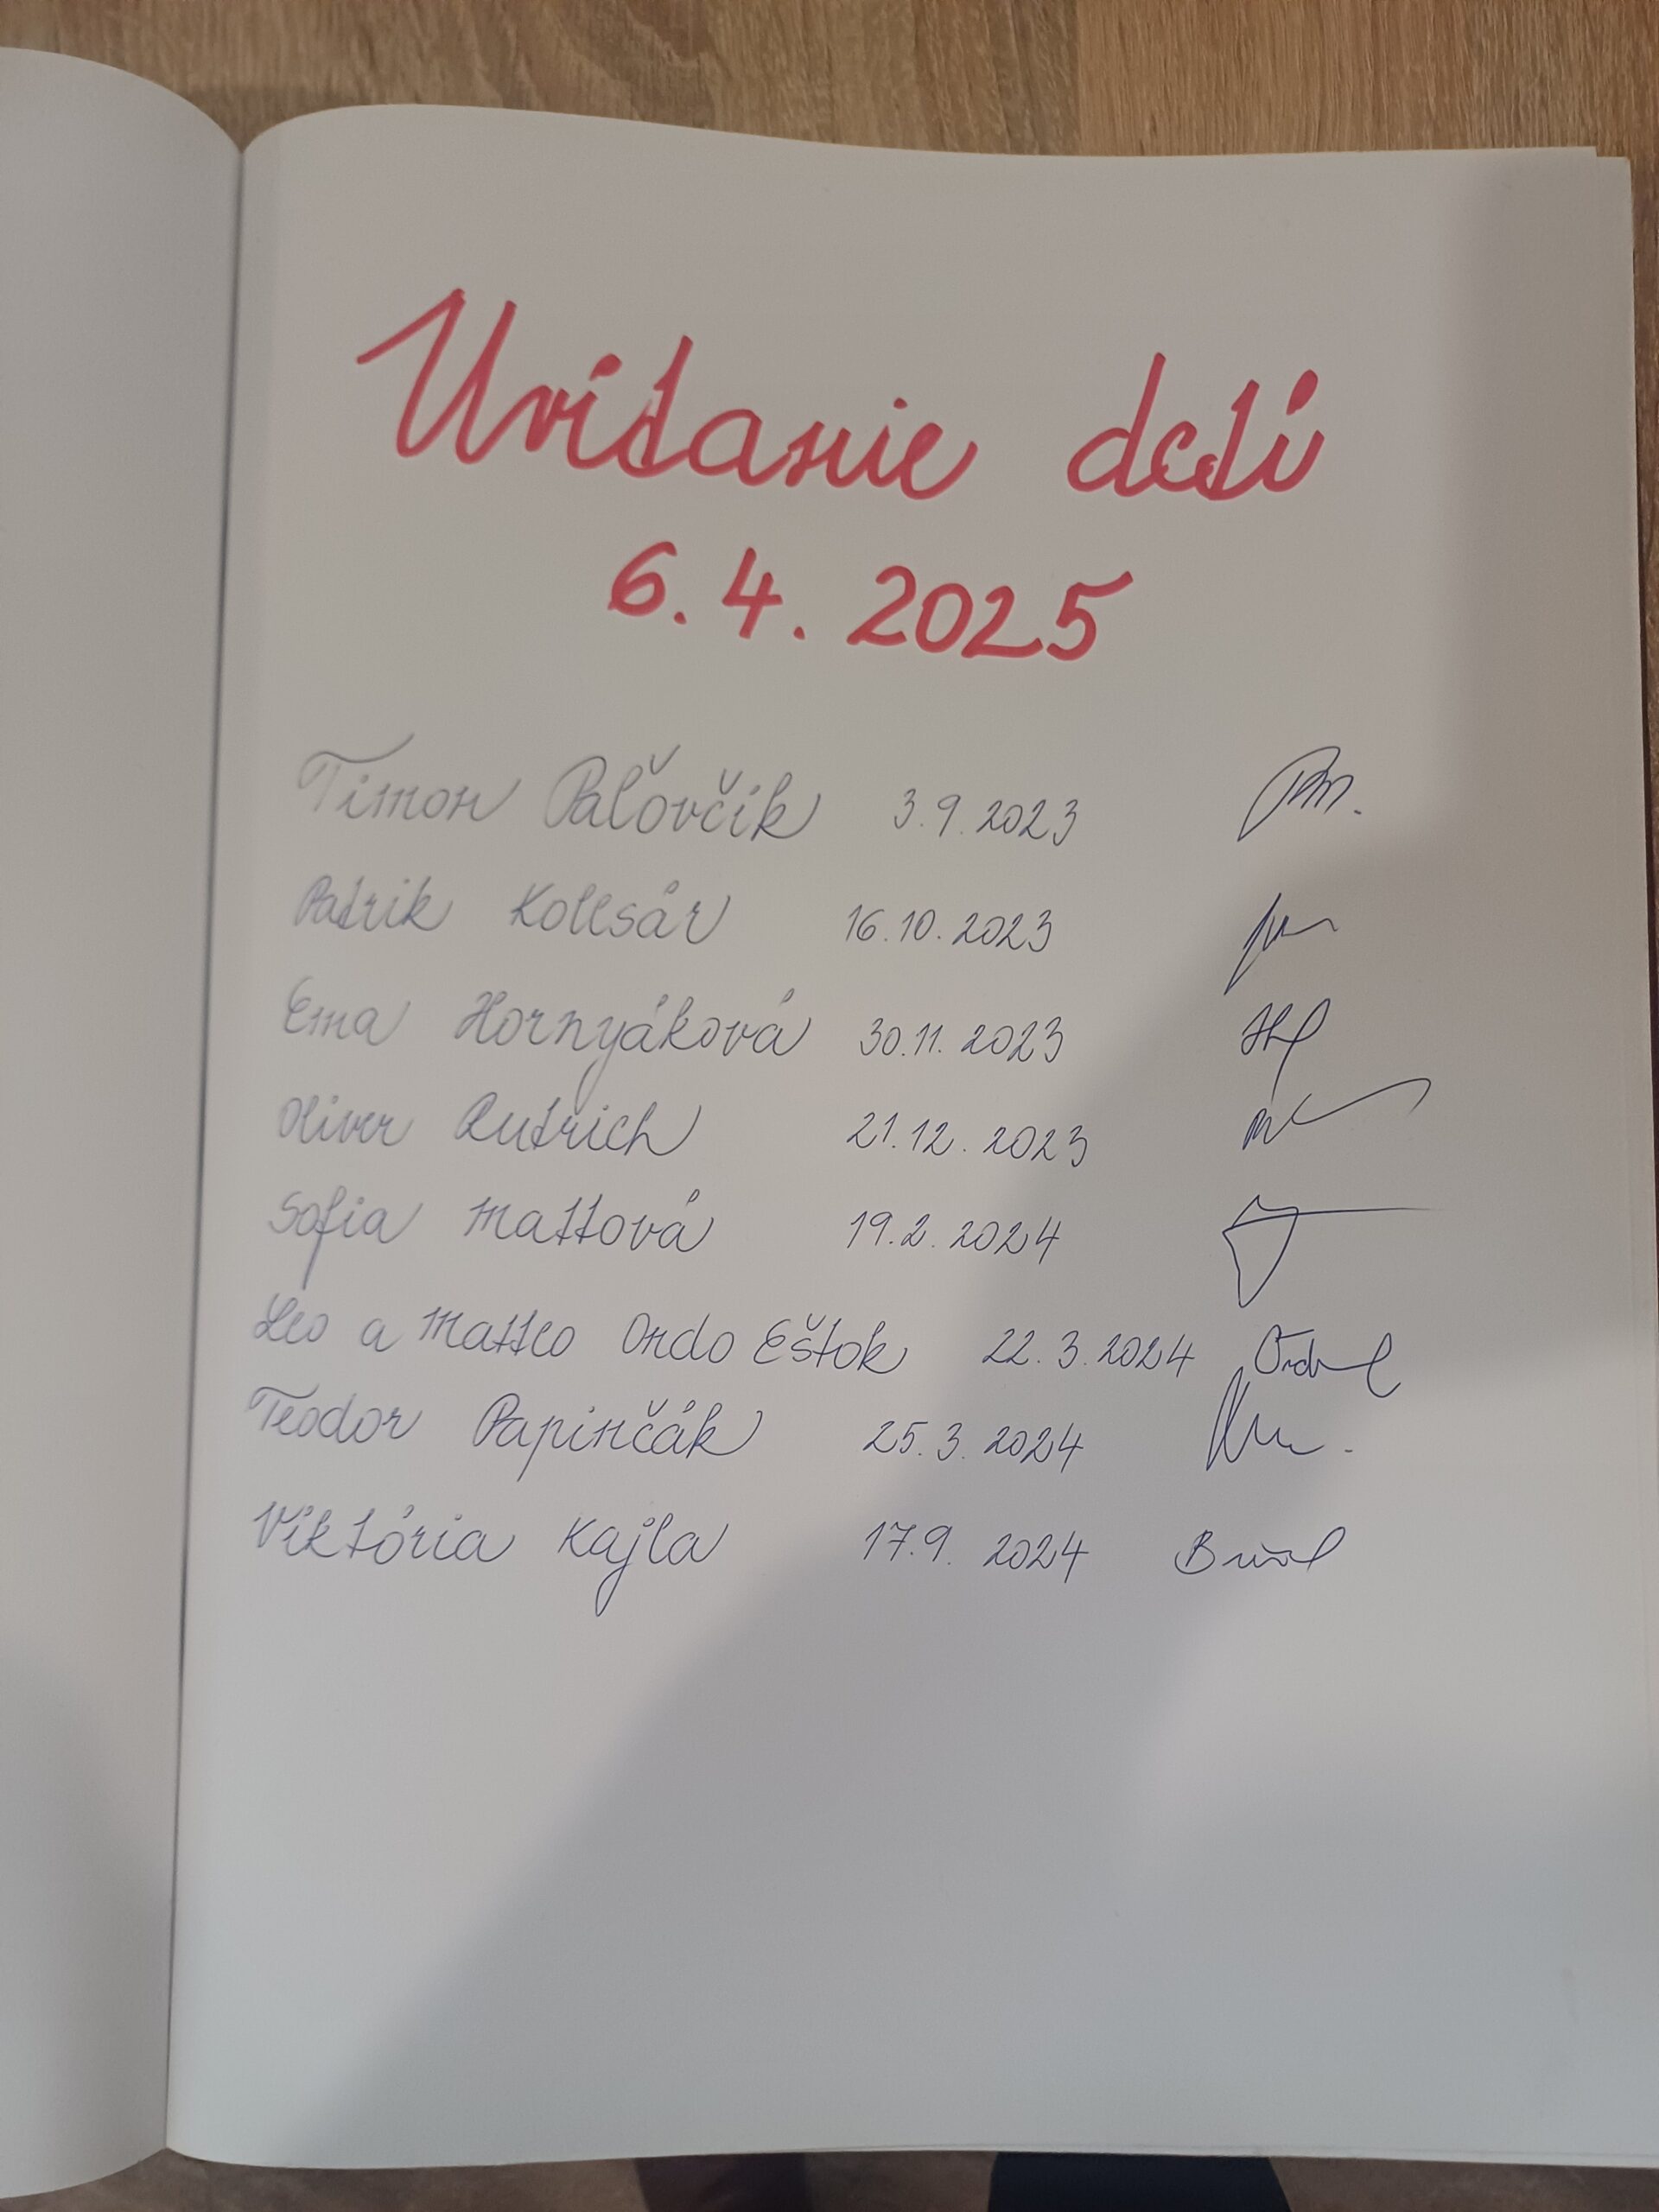 Uvítanie detí
6.4.2025
Timon Paľovčík 3.9.2023
Patrik Kolesár 16.10.2023
Ema Hornyáková 30.11.2023
Oliver Rutrich 21.12.2023
Sofia Mattová 19.2.2024
Leo a Matteo Ondo Eštok 22.3.2024
Teodor Papinčák 25.3.2024
Viktória Kajla 17.9.2024